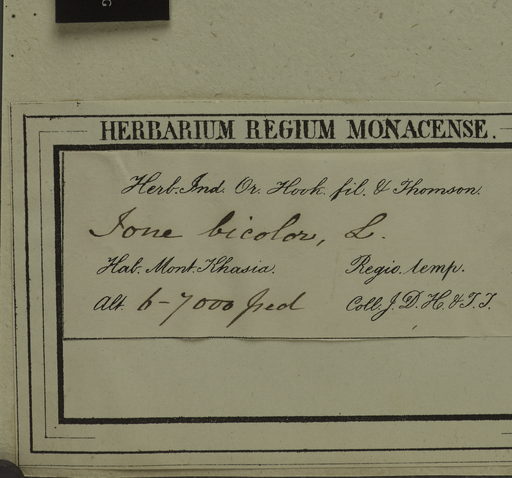 HERBARIUM REGIUM MONACENSE.
Herb. Ind. Or. Hook. fil. & Thomson.
Ione bicolor, L.
Hab. Mont. Khasia. Regio. temp.
Alt. 6-7000 ped Coll. J. D. H. & T. T.